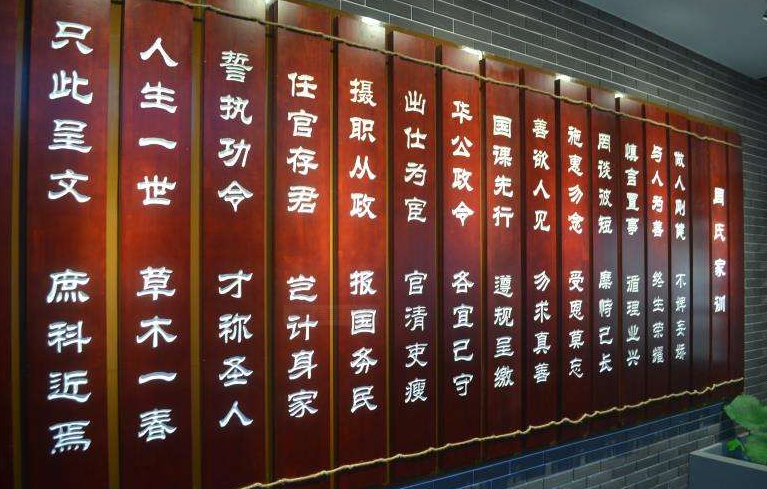 周氏家训
做人刚健 不
与人为善 终生荣耀
慎言置事 循理业兴
罔谈彼短 靡恃己长
施惠勿念 受恩莫忘
善欲人见 勿求真善
国课先行 遵规呈缴
华公政令 各宜己守
出仕为宦 官清吏瘦
摄职从政 报国务民
任官存君 岂计身家
誓执功令 才称圣人
人生一世 草木一春
只此呈文 庶科近焉